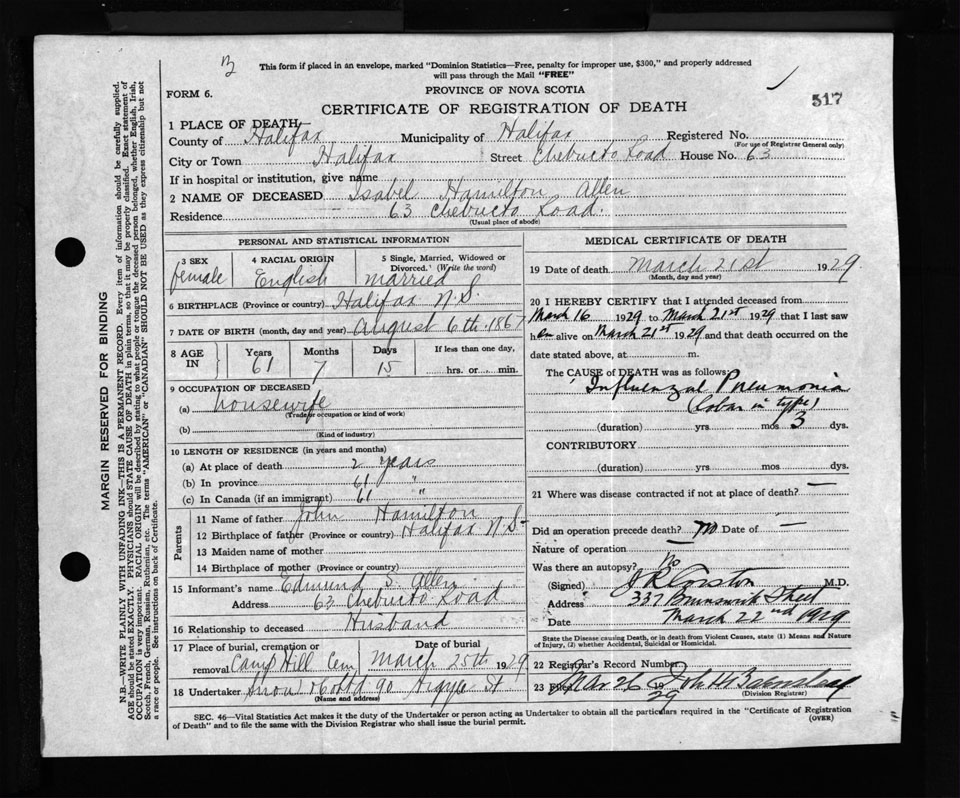 B
This form if placed in an envelope, marked "Dominion Statistics—Free, penalty for improper use, $300," and properly addressed
will pass through the Mail "FREE"
FORM 6.
PROVINCE OF NOVA SCOTIA
517
CERTIFICATE OF REGISTRATION OF DEATH
1 PLACE OF DEATH
County of Halifax Municipality of Halifax Registered No.
(For use of Registrar General only)
City or Town Halifax Street Chebucto Road House No. 63
If in hospital or institution, give name
2 NAME OF DECEASED Isabel Hamilton Allen
Residence 63 Chebucto Road.
(Usual place of abode)
PERSONAL AND STATISTICAL INFORMATION
3 SEX 4 RACIAL ORIGIN 5 Single, Married, Widowed or
Divorced. (Write the word)
female English married
6 BIRTHPLACE (Province or country) Halifax N.S.
7 DATE OF BIRTH (month, day and year) August 6th. 1867
8 AGE IN Years Months Days If less than one day,
61 7 15 hrs. or min.
9 OCCUPATION OF DECEASED
(a) housewife
(Trade or occupation or kind of work)
(b)
(Kind of industry)
10 LENGTH OF RESIDENCE (in years and months)
(a) At place of death 2 years
(b) In province 61 "
(c) In Canada (if an immigrant) 61 "
Parents
11 Name of father John Hamilton
12 Birthplace of father (Province or country) Halifax N.S.
13 Maiden name of mother
14 Birthplace of mother (Province or country)
15 Informant's name Edmund S. Allen
Address 63 Chebucto Road
16 Relationship to deceased Husband
17 Place of burial, cremation or Date of burial
removal Camp Hill Cem March 25th 1929
18 Undertaker Snow 90 Argyle St
(Name and address)
MEDICAL CERTIFICATE OF DEATH
19 Date of death March 21st 1929
(Month, day and year)
20 I HEREBY CERTIFY that I attended deceased from
March 16 1929 to March 21st 1929 that I last saw
her alive on March 21st 1929 and that death occurred on
date stated above, at m.
The CAUSE of DEATH was as follows:
Influenzal Pneumonia
(Lobar in type)
(duration) yrs mos 3 dys.
CONTRIBUTORY
(duration) yrs mos dys.
21 Where was disease contracted if not at place of death? —
Did an operation precede death? no Date of —
Nature of operation
Was there an autopsy? no
(Signed) M.D.
Address 337 Brunswick Street
Date March 22nd 1929
State the Disease causing Death, or in death from Violent Causes, state (1) Means and Nature
of Injury, (2) whether Accidental, Suicidal or Homicidal.
22 Registrar's Record Number
23 Mar 26 29 John H
(Division Registrar)
SEC. 46—Vital Statistics Act makes it the duty of the Undertaker or person acting as Undertaker to obtain all the particulars required in the "Certificate of Registration
of Death" and to file the same with the Division Registrar who shall issue the burial permit.
(OVER)
MARGIN RESERVED FOR BINDING
N.B.—WRITE PLAINLY WITH UNFADING INK—THIS IS A PERMANENT RECORD. Every item of information should be carefully supplied.
AGE should be stated EXACTLY. PHYSICIANS should STATE CAUSE OF DEATH in plain terms, so that it may be properly classified. Exact statement of
OCCUPATION is very important. RACIAL ORIGIN will be described by stating to what people or tongue the deceased person belonged, whether English, Irish,
Scotch, French, German, Russian, Ruthenian, etc. The terms "AMERICAN" or "CANADIAN" SHOULD NOT BE USED as they express citizenship but not
a race or people. See instructions on back of Certificate.